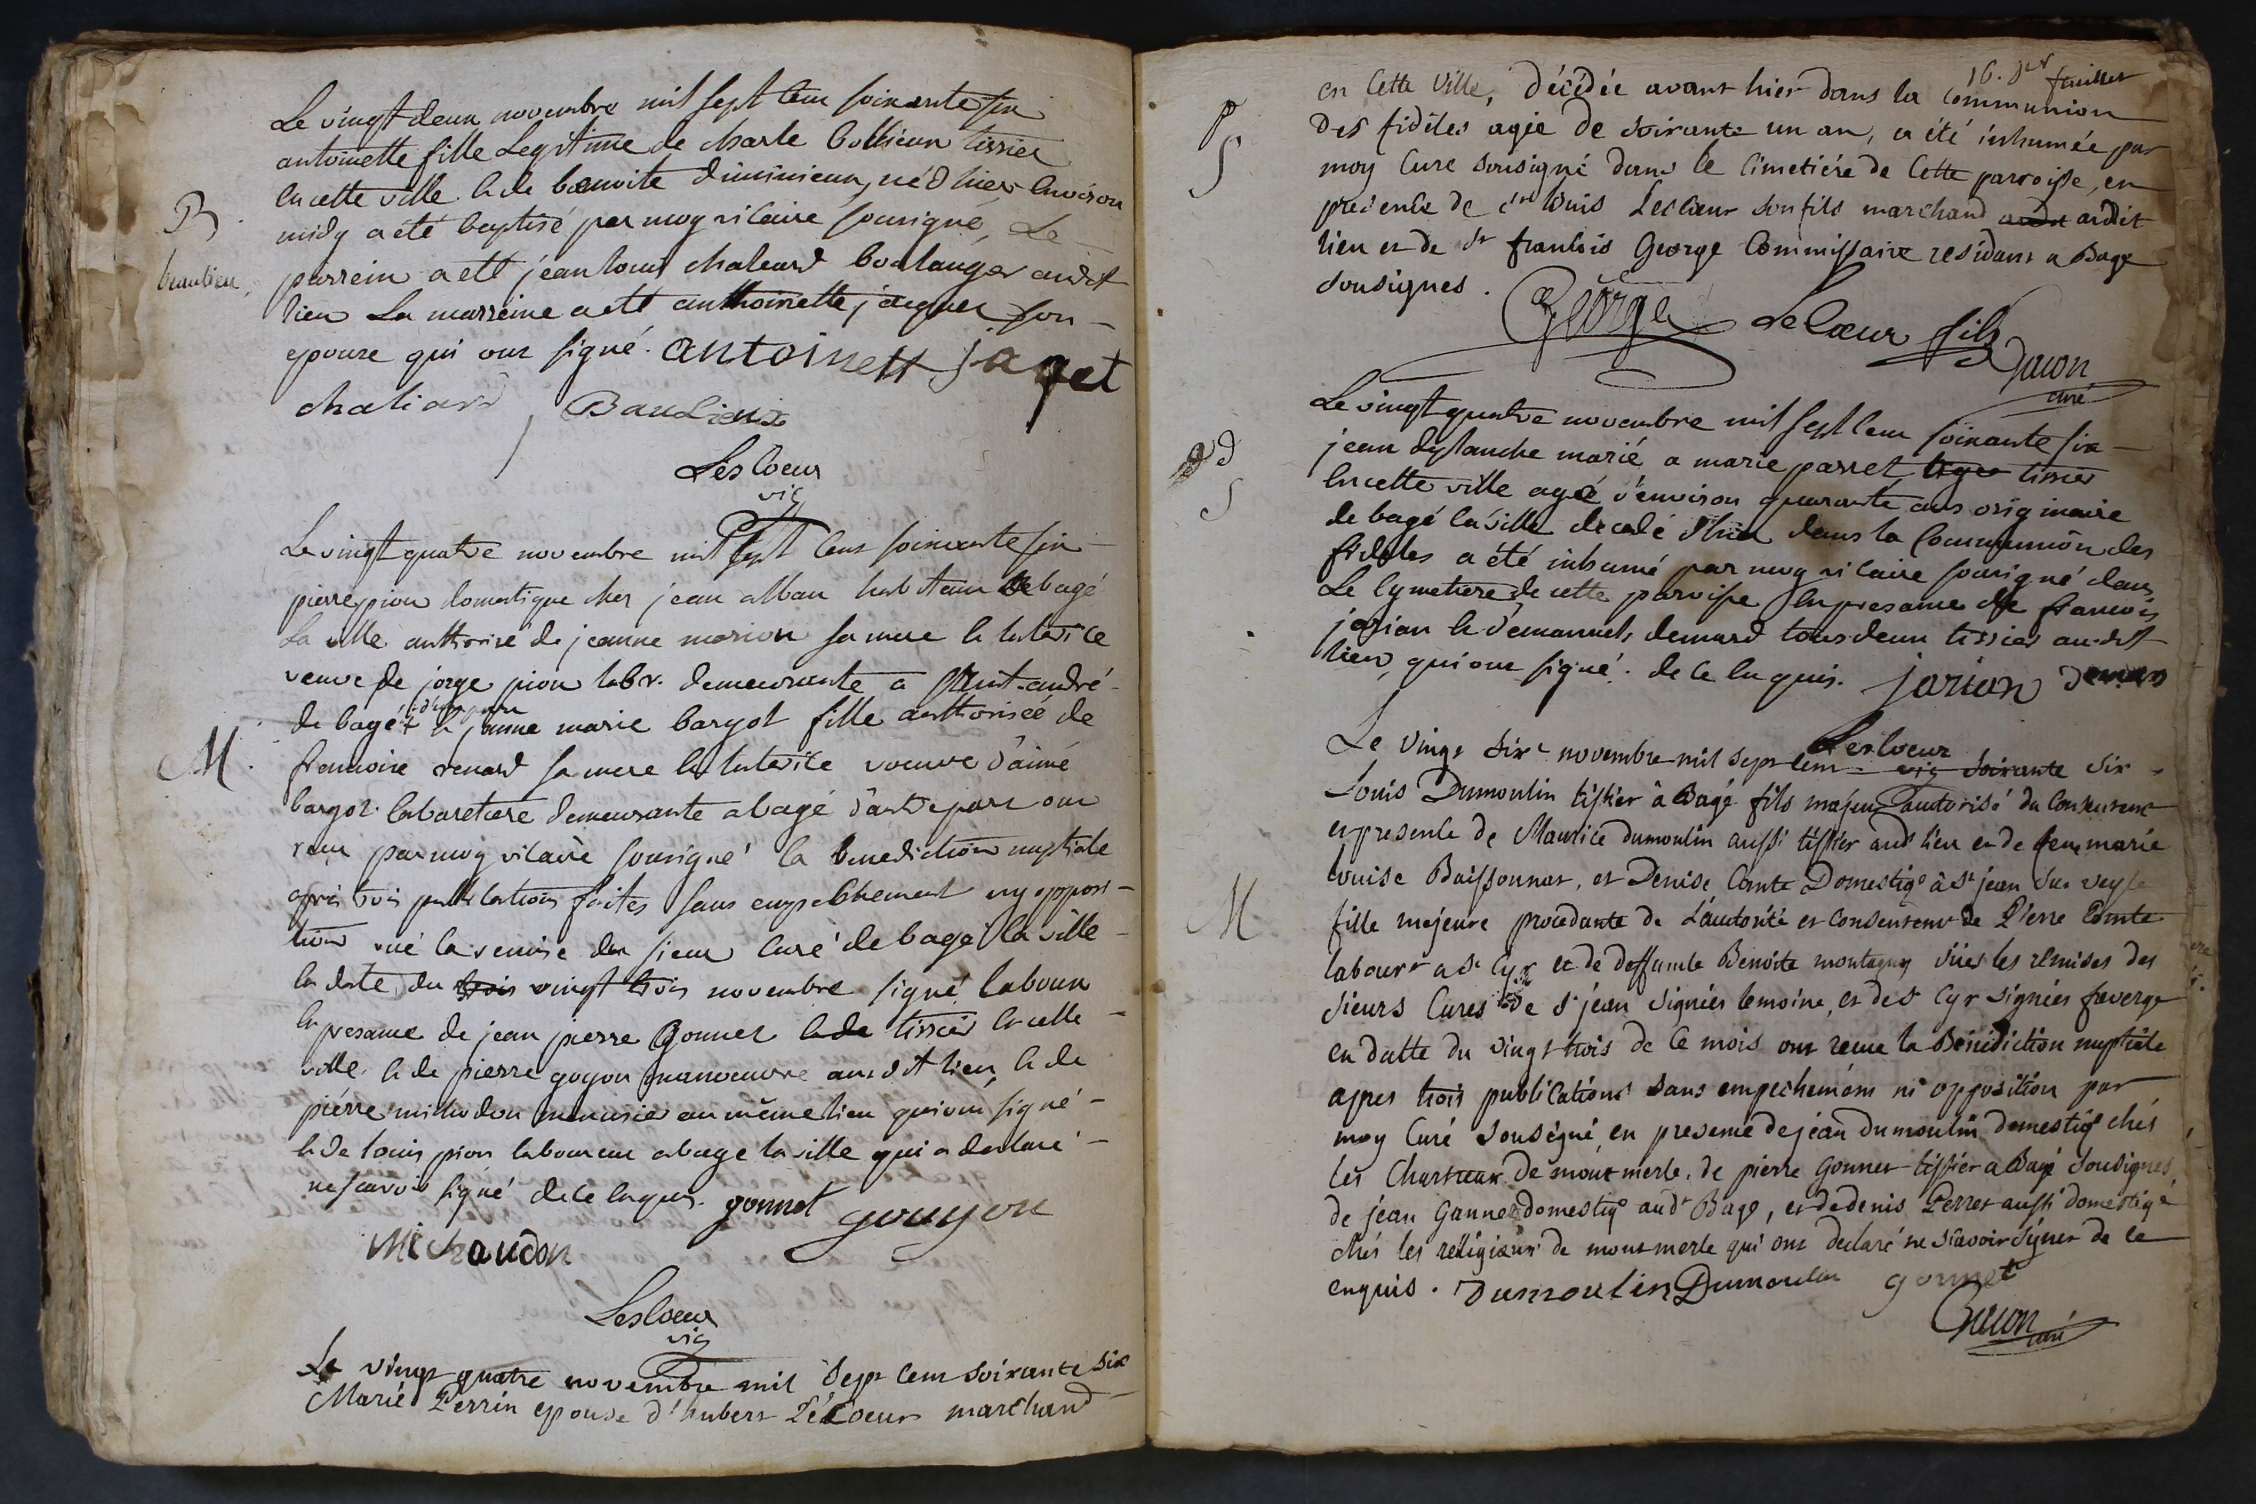 Le vingt deux novembre mil sept cent soixante six
antoinette fille Legitime de charle bollieux tissier
en cette ville et de benoite diminieux, né d'hier environ
B
midy a été baptisé par moy vicaire sousigné, Le
beaulieu
parrein a eté jean louis chaleard boulanger audit
lieu La marreine a eté anthoinette jaques son
epouse qui ont signé. antoinett jaqet
chaliard Baulieux
Lescoeur
vic
Le vingt quatre novembre mil sept cent soixante six
pierre pion domestique chez jean alban habitant de bagé
La ville authorisé de jeanne marion sa mere et tutrice
veuve de jorge pion labr. demeurante a saint andré
de bagé d'une part et jeanne marie bargot fille authorisée de
francoise renard sa mere et tutrice veuve d'aimé
M.
bargot cabaretiere demeurante a bagé d'autre part ont
reçu par moy vicaire sousigné la benediction nuptiale
apres trois publications faites sans empechement ny opposi-
tion vüe la remise du sieur curé de bagé la ville
en date du trois vingt trois novembre signé laboun
en presance de jean pierre Gonnet et de tissier en cette
ville et de pierre goyon manoeuvre audit lieu et de
pierre michodon menusier au même lieu qui ont signé
et de louis pion laboureur a bage la ville qui a declaré
ne scavoir signé de ce enquis. gonnet gouyon
Michaudon
Lescoeur
vic
Le vingt quatre novembre mil sept cent soixante six
Marie Perrin epouse d'hubert Lécoeur marchand
16. der feuillet
en cette ville, décédée avant hier dans la communion
des fidéles agée de soixante un an, a été inhumée par
S
moy curé sousigné dans le cimetiére de cette parroisse, en
presence de sr Louis Lescoeur son fils marchand audit
lieu et de sr françois George Commissaire residant a Bagé
sousignes.
George Lecoeur fils
Gacon
curé
Le vingt quatre novembre mil sept cent soixante six
jean dyslanche marié a marie parret tissier
en cette ville agé d'environ quarante ans originaire
S
de bagé la ville decedé d'hier dans la communion des
fideles a été inhumé par moy vicaire sousigné dans
Le cymetiere de cette paroisse en presance de francois
jarian et d'emanuel demard tous deux tissier audit
lieu, qui ont signé. de ce enquis. jarian demard
Lescoeur
vic
Le vingt six novembre mil sept cent soixante six
Louis Dumoulin tissier à Bagé fils majeur autorisé du consentement
et presence de Maurice dumoulin aussi tissier audt lieu et de feue marie
louise Buissonnat, et Denise Comte Domestiqe à St jean sur veyle
M
fille majeure procedante de l'autorité et consentent de Pierre Comte
labourr a St Cyr et de deffunte Benoite montagny vües les remises des
sieurs Cures de St jean signées lemoine, et de St Cyr signées faverge
en datte du vingt trois de ce mois ont recue la Bénédiction nuptiale
apres trois publications sans empechement ni opposition par
moy Curé sousigné, en presence de jean dumoulin domestiqe chés
les Chartreux de mont merle, de pierre Gonnet tissier a Bagé sousignes,
de jean Gannet domestiqe audt Bage, et de denis Perret aussi domestiqe
chés les réligieux de mont merle qui ont declaré ne sçavoir signer de ce
enquis. Dumoulin Dumoulin gonnet
Gacon
curé